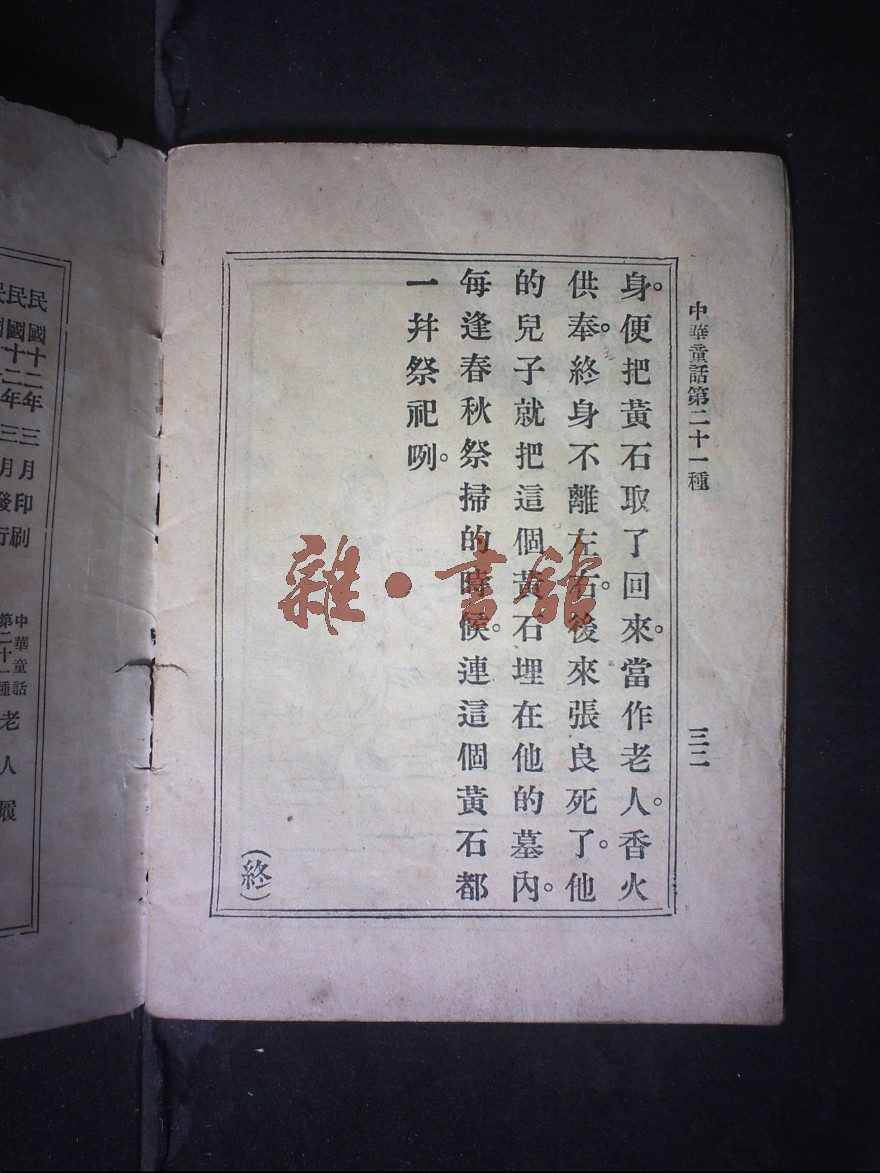 中華童話第二十一種
三二
身。便把黃石取了回來。當作老人。香火
供奉。終身不離左右。後來張良死了。他
的兒子就把這個黃石埋在他的墓內。
每逢春秋祭掃的時候。連這個黃石都
一幷祭祀咧。
(終)
雜·書館
民國十二年三月印刷
民國十二年三月發行
中華童話
第二十一種
老人履